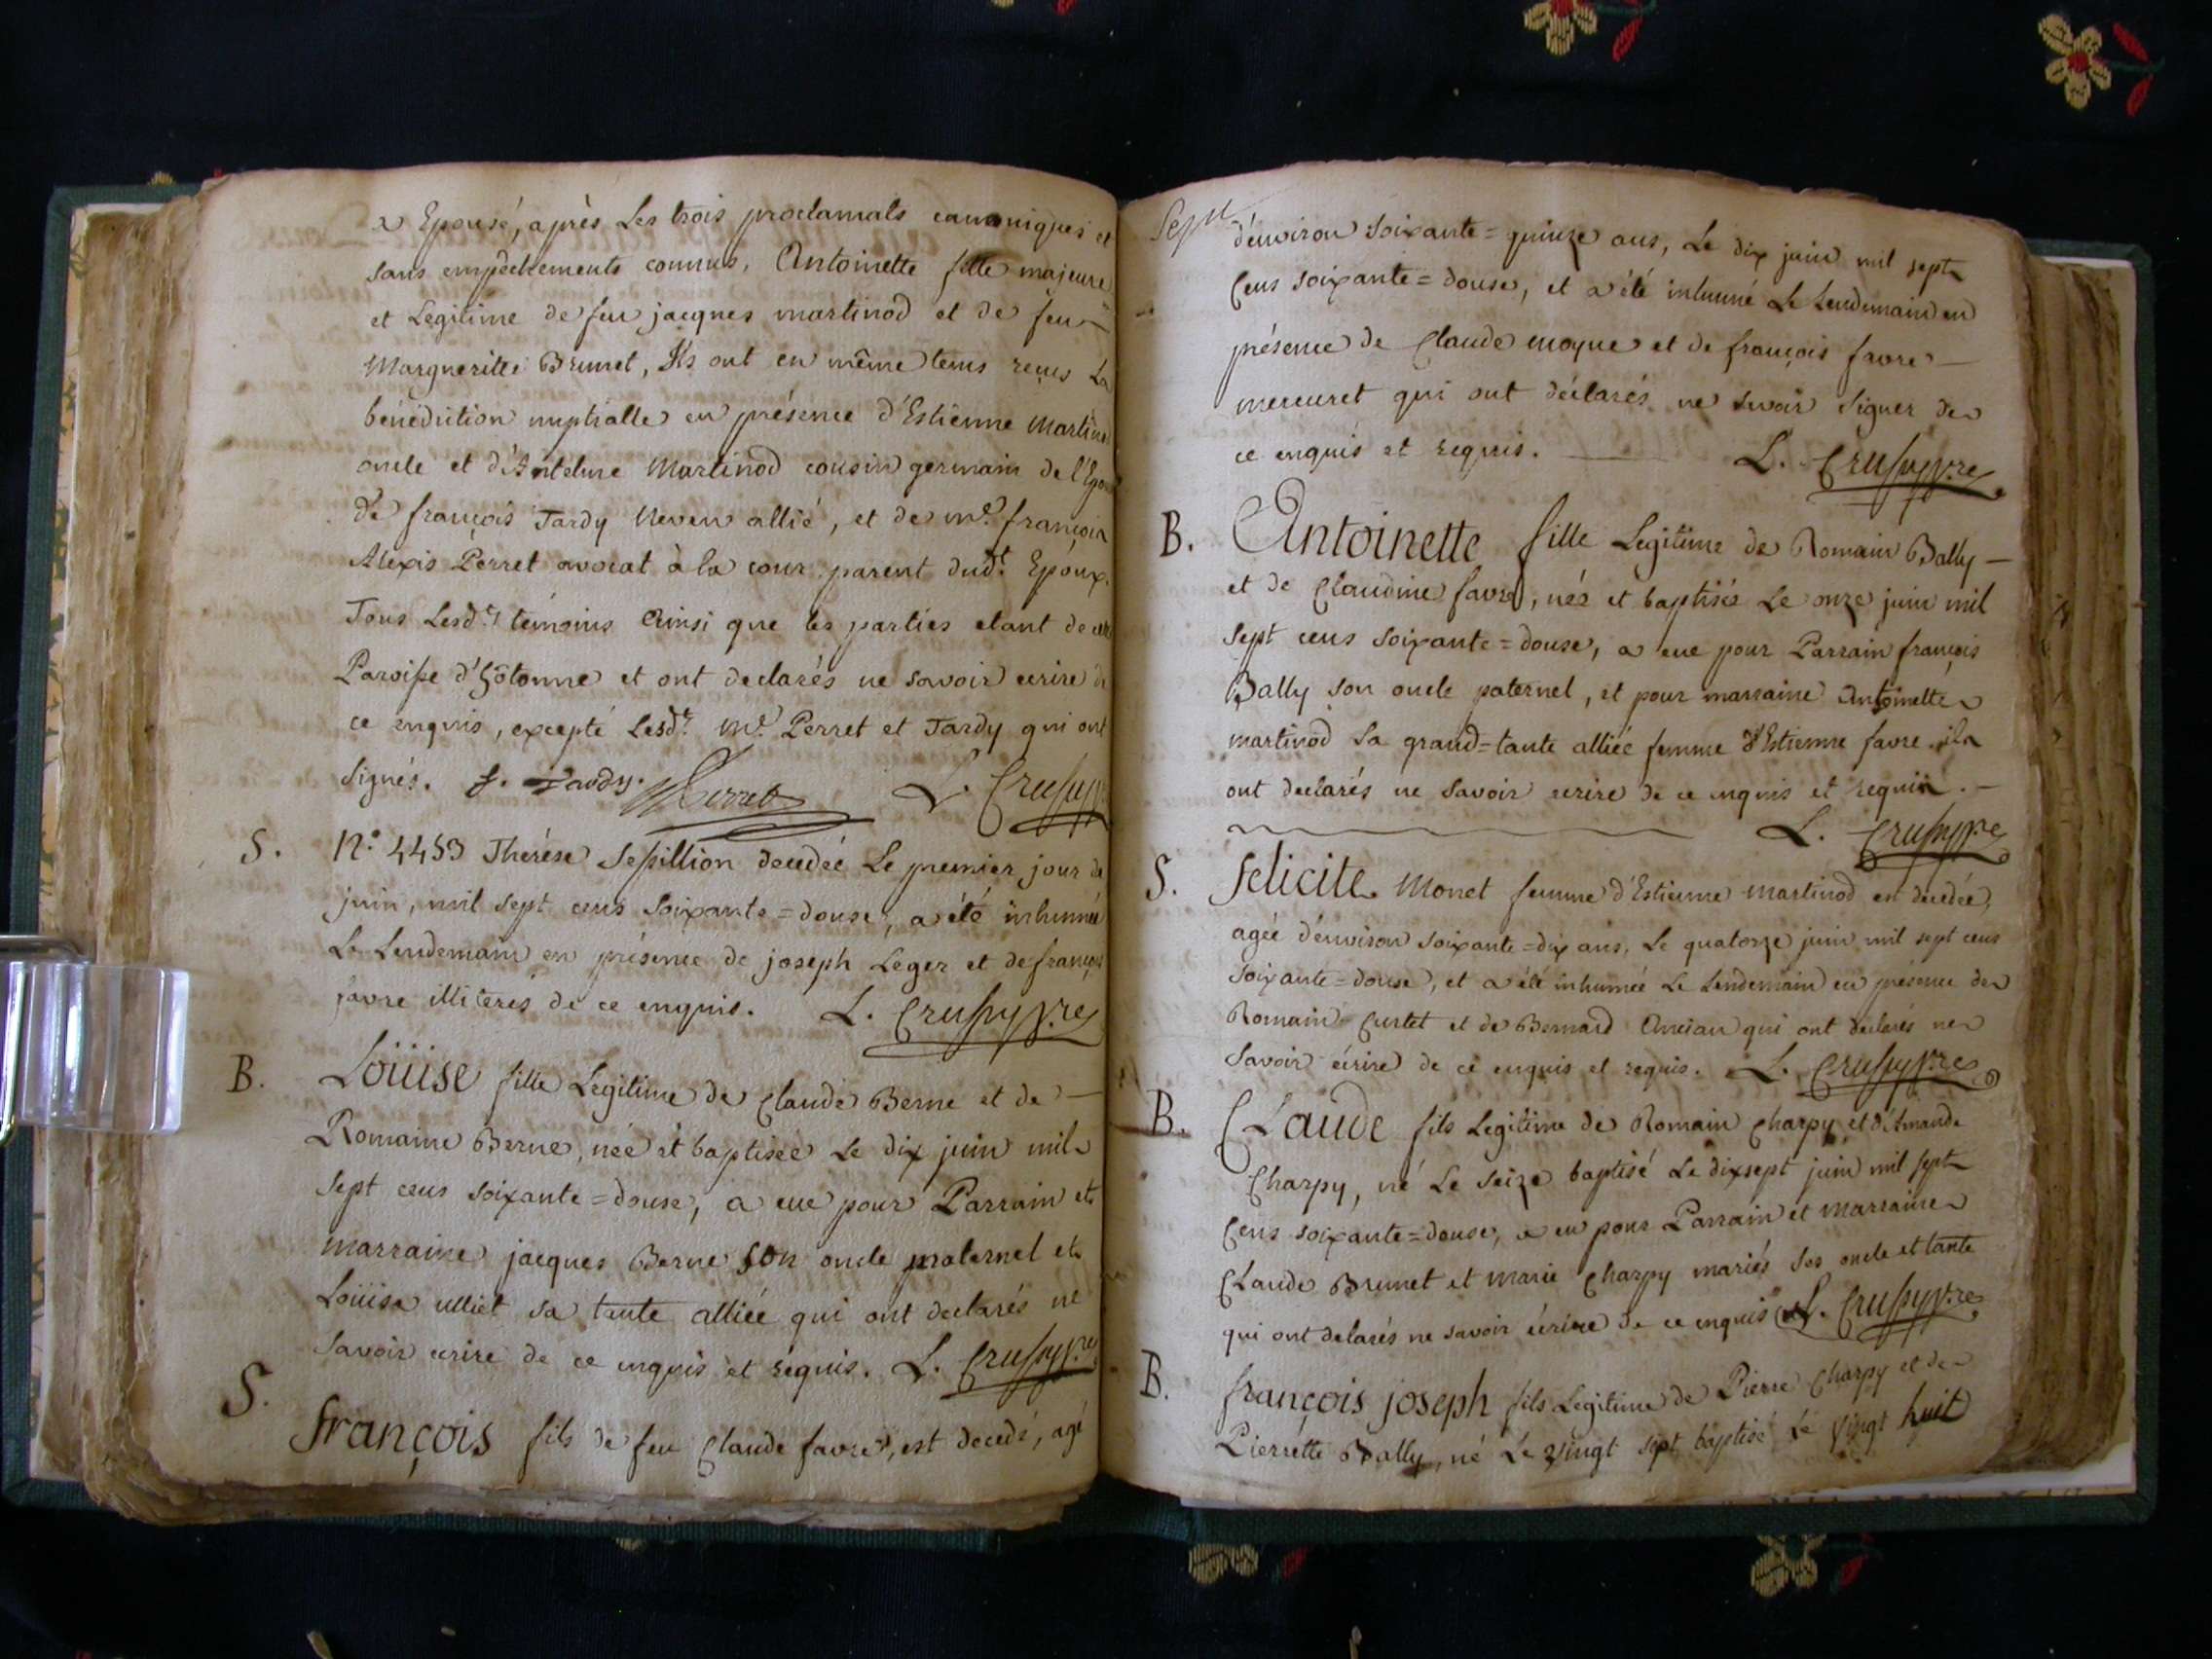 a Epousé, après Les trois proclamats canoniques et
sans empêchements connus, Antoinette fille majeure
et Legitime de feu jacques martinod et de feu
Margueritte Brunet, Ils ont en même tems reçus La
bénédiction nuptialle en présence d'Estienne Martinod
oncle et d'Antelme Martinod cousin germain de l'Epouse
de françois Tardy Neveu allié, et de mͤ. françois
Alexis Perret avocat à la cour parent dudᵗ. Epoux.
Tous Lesdᵗˢ témoins Ainsi que les parties etant de cette
Paroisse d'hôtonne et ont declarés ne savoir ecrire de
ce enquis, excepté Lesdᵗˢ. mͤ. Perret et Tardy qui ont
signés. f. Tardy. Perret L. Crussy
S. N.° 4453 Thérèse Sepillion decedée Le premier jour de
juin, mil sept cens soixante=douse, a été inhumée
Le Lendemain en présence de joseph Léger et de françois
favre illiterés de ce enquis. L. Crussy v.re
B. Loüise fille Legitime de Claude Berne et de
Romaine Berne, née et baptisée Le dix juin mil
sept cens soixante=douse, a eue pour Parrain et
marraine jacques Berne son oncle maternel et
Loüise ulliet sa tante alliée qui ont declarés ne
savoir ecrire de ce enquis et requis. L. Crussy v.re
S. françois fils de feu Claude favre, est decedé, agé
Sepu
d'environ soixante=quinze ans, Le dix juin mil sept
Cens soixante=douse, et a été inhumé Le Lendemain en
présence de Claude moyne et de françois favre
mercuret qui ont déclarés ne savoir signer de
ce enquis et requis. L. Crussy v.re
B. Antoinette fille Legitime de Romain Bally
et de Claudine favre, née et baptisée Le onze juin mil
sept cens soixante=douse, a eue pour Parrain françois
Bally son oncle paternel, et pour marraine Antoinette
martinod sa grand=tante alliée femme d'Estienne favre. ils
ont declarés ne savoir ecrire de ce enquis et requis.
L. Crussy v.re
S. felicite Monet femme d'Estienne martinod est decedée,
agée d'environ soixante=dix ans, Le quatorze juin mil sept cens
soixante=douse, et a été inhumée Le Lendemain en présence de
Romain Curtet et de Bernard Ancian qui ont declarés ne
savoir écrire de ce enquis et requis. L. Crussy v.re
B. CLaude fils Legitime de Romain Charpy et d'Amande
Charpy, né Le seize baptisé Le dixsept juin mil sept
Cens soixante=douse, a eu pour Parrain et marraine
CLaude Brunet et marie Charpy mariés ses oncle et tante
qui ont delarés ne savoir écrire de ce enquis L. Crussy v.re
B. françois joseph fils Legitime de Pierre Charpy et de
Pierrette Bally, né Le vingt sept baptisé Le vingt huit